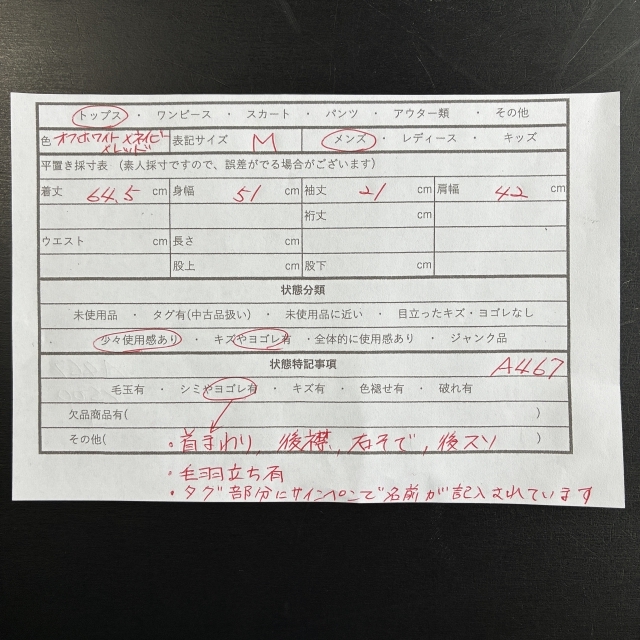 トップス ・ ワンピース ・ スカート ・ パンツ ・ アウター類 ・ その他
色 オフホワイト×ネイビー×レッド 表記サイズ M メンズ ・ レディース ・ キッズ
平置き採寸表 (素人採寸ですので、誤差がでる場合がございます)
着丈 64.5 cm 身幅 51 cm 袖丈 21 cm 肩幅 42 cm
裄丈 cm
ウエスト cm 長さ cm
股上 cm 股下 cm
状態分類
未使用品 ・ タグ有(中古品扱い) ・ 未使用品に近い ・ 目立ったキズ・ヨゴレなし
少々使用感あり ・ キズやヨゴレ有 ・全体的に使用感あり ・ ジャンク品
状態特記事項 A467
毛玉有 ・ シミやヨゴレ有 ・ キズ有 ・ 色褪せ有 ・ 破れ有
欠品商品有( )
その他( ・首まわり, 後襟, 右そで, 後スソ )
・毛羽立ち有
・タグ部分にサインペンで名前が記入されています